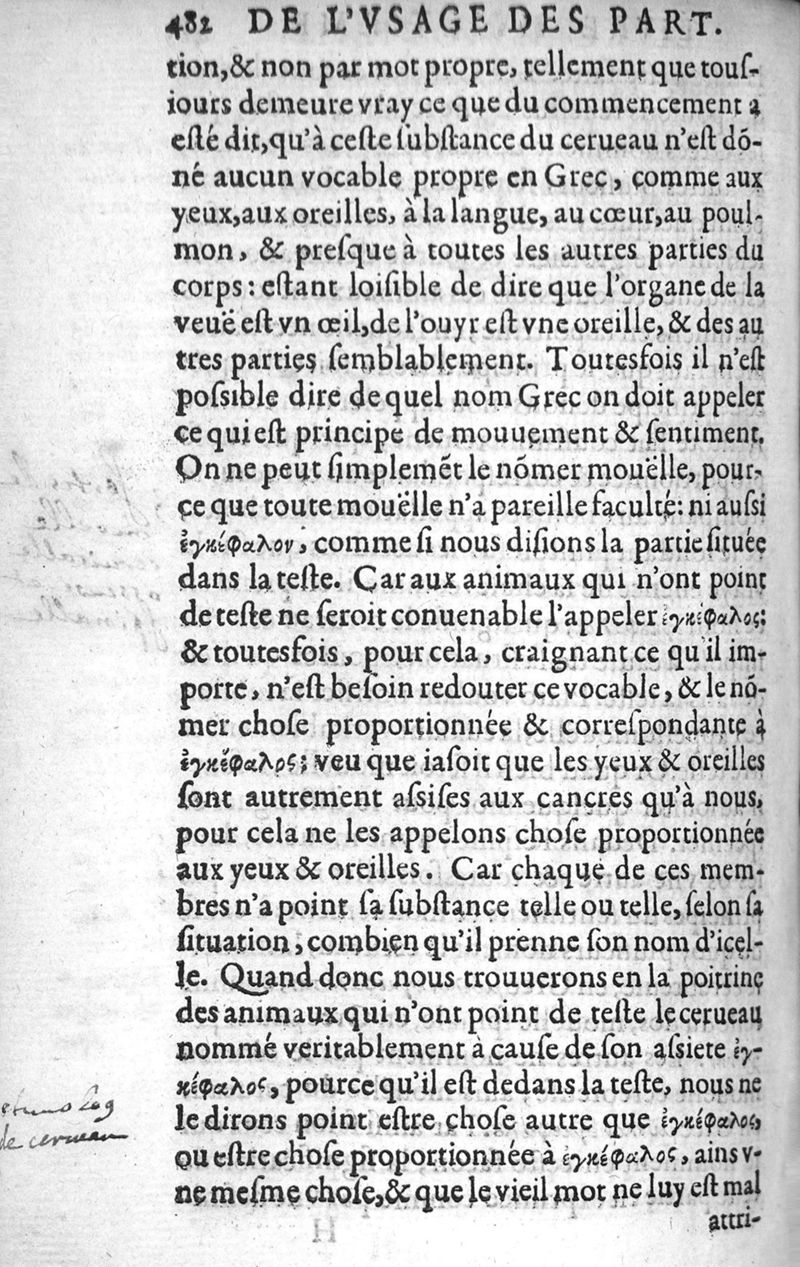 482 DE L'VSAGE DES PART.
tion,& non par mot propre, tellement que touſ-
iours demeure vray ce que du commencement a
eſté dit,qu'à ceſte ſubſtance du cerueau n'eſt dõ-
né aucun vocable propre en Grec, comme aux
yeux,aux oreilles, à la langue, au cœur,au poul-
mon, & preſque à toutes les autres parties du
corps: eſtant loiſible de dire que l'organe de la
veuë eſt vn œil,de l'ouyr eſt vne oreille, & des au
tres parties ſemblablement. Toutesfois il n'eſt
poſsible dire de quel nom Grec on doit appeler
ce qui eſt principe de mouuement & ſentiment.
On ne peut ſimplemẽt le nõmer mouëlle, pour-
ce que toute mouëlle n'a pareille faculté: ni auſsi
ἐγκέφαλον, comme ſi nous diſions la partie ſituée
dans la teſte. Car aux animaux qui n'ont point
de teſte ne ſeroit conuenable l'appeler ἐγκέφαλος:
& toutesfois, pour cela, craignant ce qu'il im-
porte, n'eſt beſoin redouter ce vocable, & le nõ-
mer choſe proportionnée & correſpondante à
ἐγκέφαλος; veu que iaſoit que les yeux & oreilles
ſont autrement aſsiſes aux cancres qu'à nous,
pour cela ne les appelons choſe proportionnée
aux yeux & oreilles. Car chaque de ces mem-
bres n'a point ſa ſubſtance telle ou telle, ſelon ſa
ſituation, combien qu'il prenne ſon nom d'icel-
le. Quand donc nous trouuerons en la poitrine
des animaux qui n'ont point de teſte le cerueau
nommé veritablement à cauſe de ſon aſsiete ἐγ-
κέφαλος, pource qu'il eſt dedans la teſte, nous ne
le dirons point eſtre choſe autre que ἐγκέφαλος,
ou eſtre choſe proportionnée à ἐγκέφαλος, ains v-
ne meſme choſe,& que le vieil mot ne luy eſt mal
attri-
de cerueau